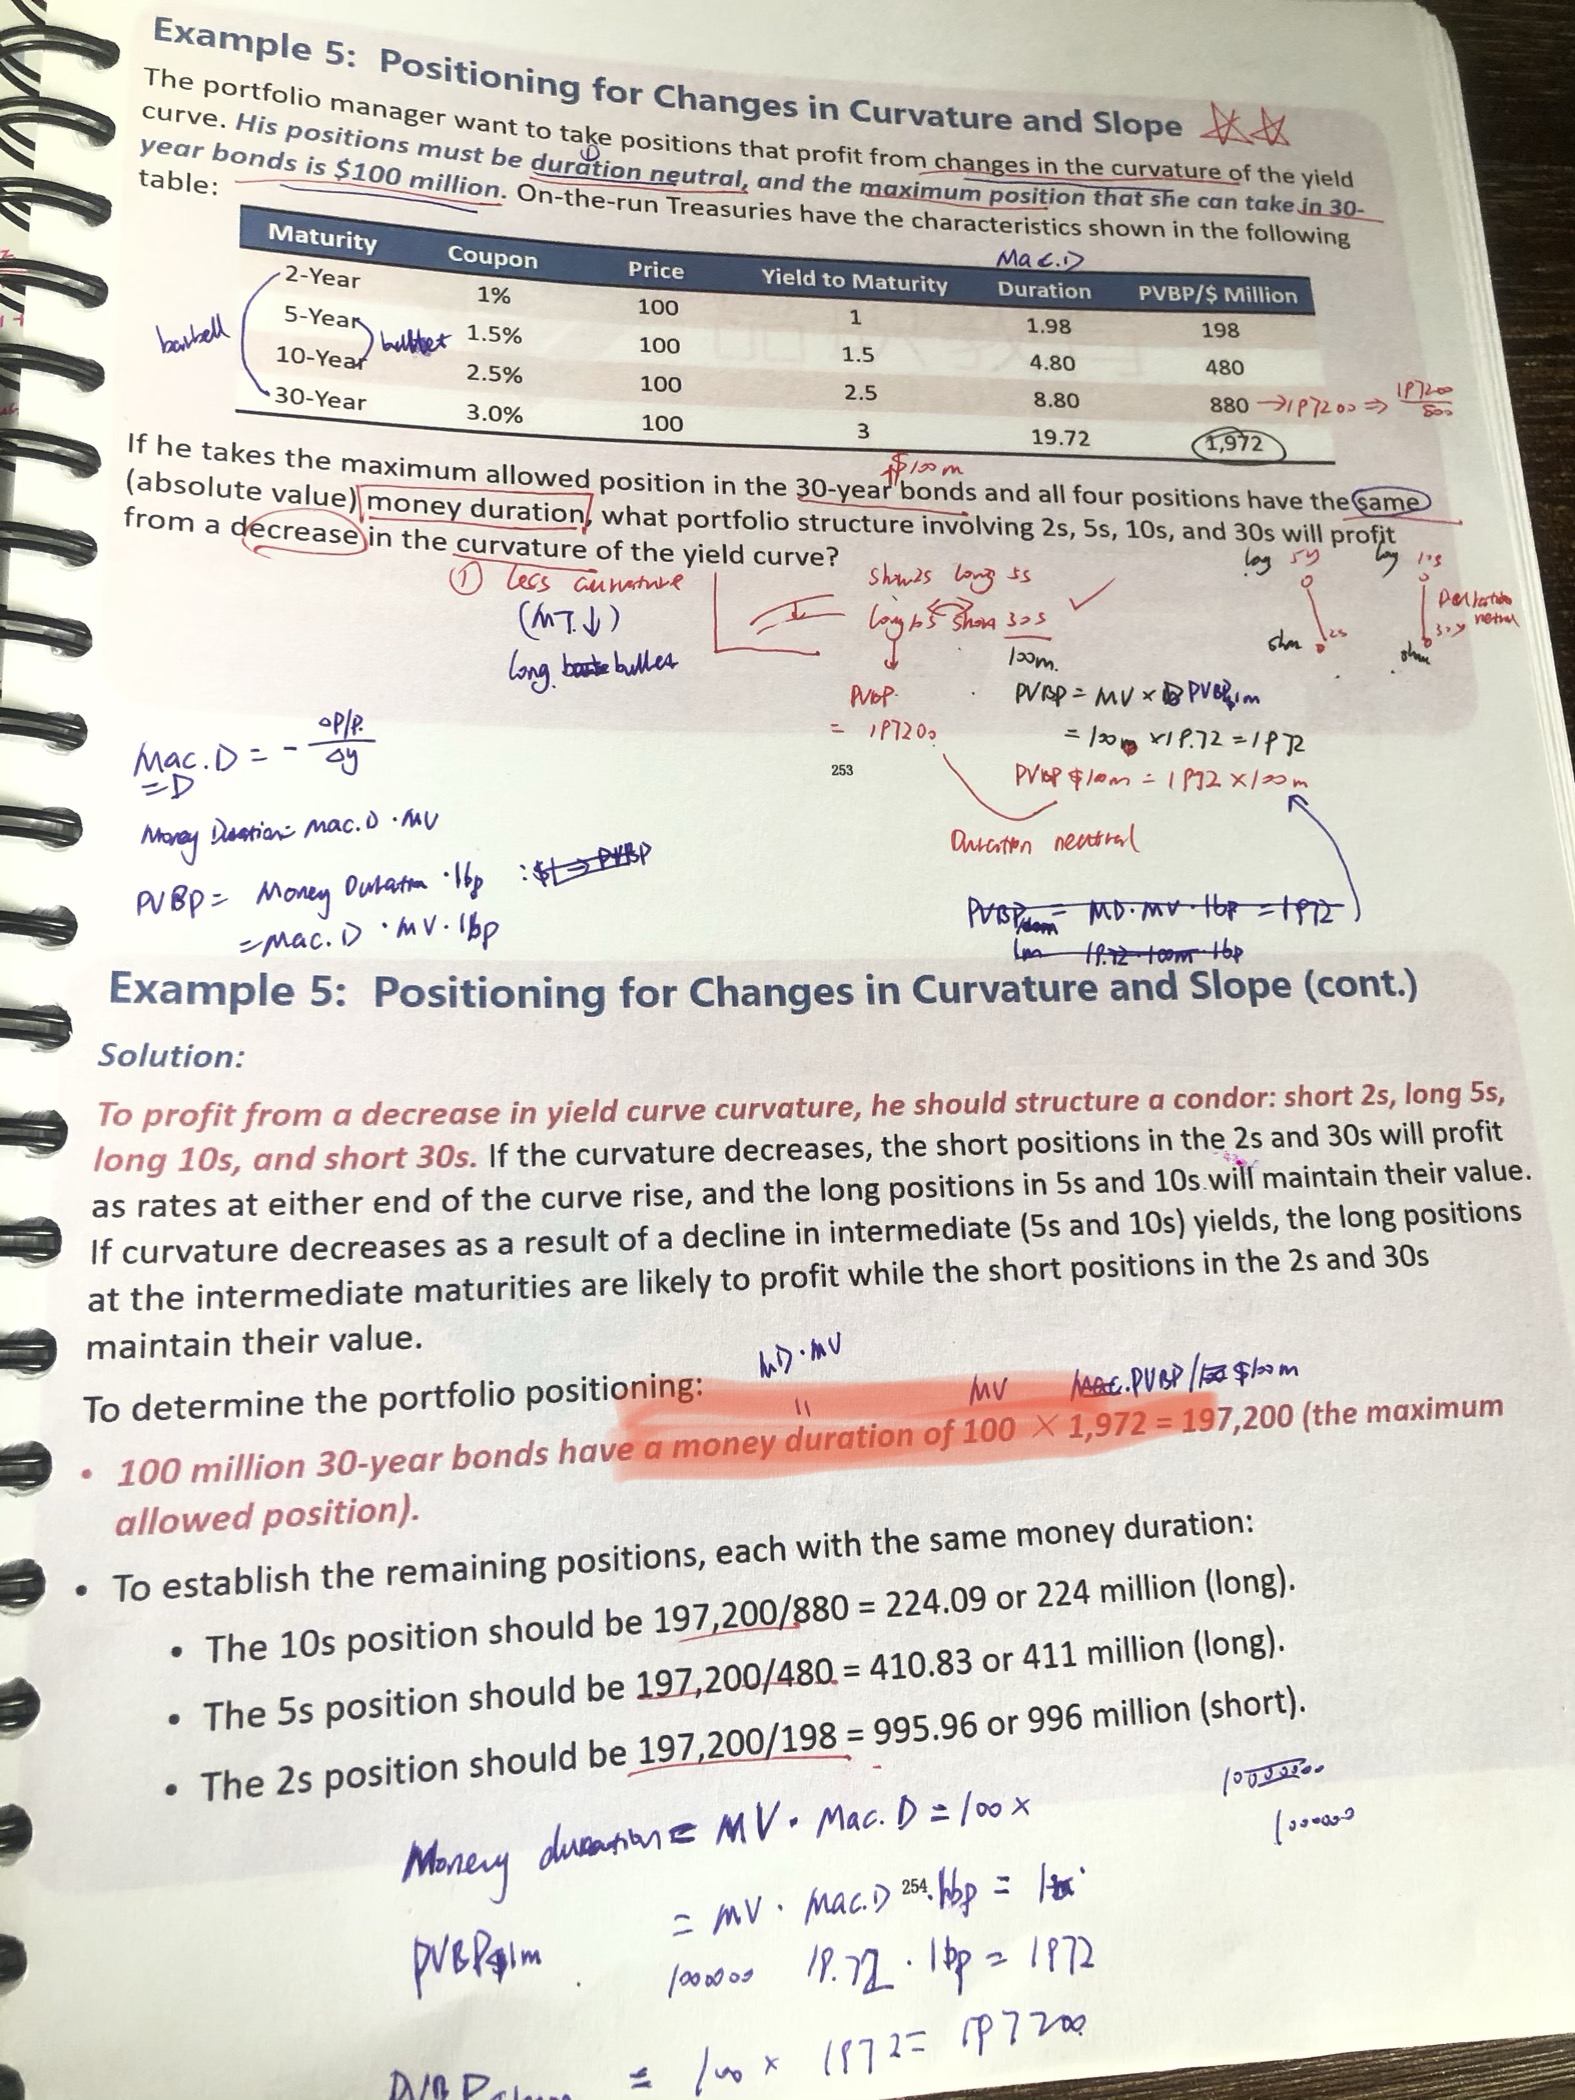 Example 5: Positioning for Changes in Curvature and Slope
The portfolio manager want to take positions that profit from changes in the curvature of the yield
curve. His positions must be duration neutral, and the maximum position that she can take in 30-
year bonds is $100 million. On-the-run Treasuries have the characteristics shown in the following
table:
Mac.D
Maturity Coupon Price Yield to Maturity Duration PVBP/$ Million
2-Year 1% 100 1 1.98 198
5-Year 1.5% 100 1.5 4.80 480
10-Year 2.5% 100 2.5 8.80 880 → 197200 ⇒ 197200
30-Year 3.0% 100 3 19.72 1,972
barbell
bullet
$100m
If he takes the maximum allowed position in the 30-year bonds and all four positions have the same
(absolute value) money duration, what portfolio structure involving 2s, 5s, 10s, and 30s will profit
from a decrease in the curvature of the yield curve?
① less curvature
(MT.↓)
long bullet
long 5s
30s
100m.
PVBP
= 197200
PVBP = MV ×
= 100m ×19.72 = 1972
PVBP $100m = 1972 × 100m
Duration neutral
Mac.D = - ΔP/P. / Δy
= D
Money Duration = Mac.D · MV
PVBP = Money Duration · 1bp
= Mac.D · MV · 1bp
253
Example 5: Positioning for Changes in Curvature and Slope (cont.)
Solution:
To profit from a decrease in yield curve curvature, he should structure a condor: short 2s, long 5s,
long 10s, and short 30s. If the curvature decreases, the short positions in the 2s and 30s will profit
as rates at either end of the curve rise, and the long positions in 5s and 10s will maintain their value.
If curvature decreases as a result of a decline in intermediate (5s and 10s) yields, the long positions
at the intermediate maturities are likely to profit while the short positions in the 2s and 30s
maintain their value.
MD·MV
MV
PVBP/ $100m
To determine the portfolio positioning:
• 100 million 30-year bonds have a money duration of 100 × 1,972 = 197,200 (the maximum
allowed position).
• To establish the remaining positions, each with the same money duration:
• The 10s position should be 197,200/880 = 224.09 or 224 million (long).
• The 5s position should be 197,200/480 = 410.83 or 411 million (long).
• The 2s position should be 197,200/198 = 995.96 or 996 million (short).
Money duration = MV · Mac.D = 100 ×
= MV · Mac.D · 1bp =
254
PVBP$1m
1000000 19.72 · 1bp = 1972
= 100 × 1972 = 197200